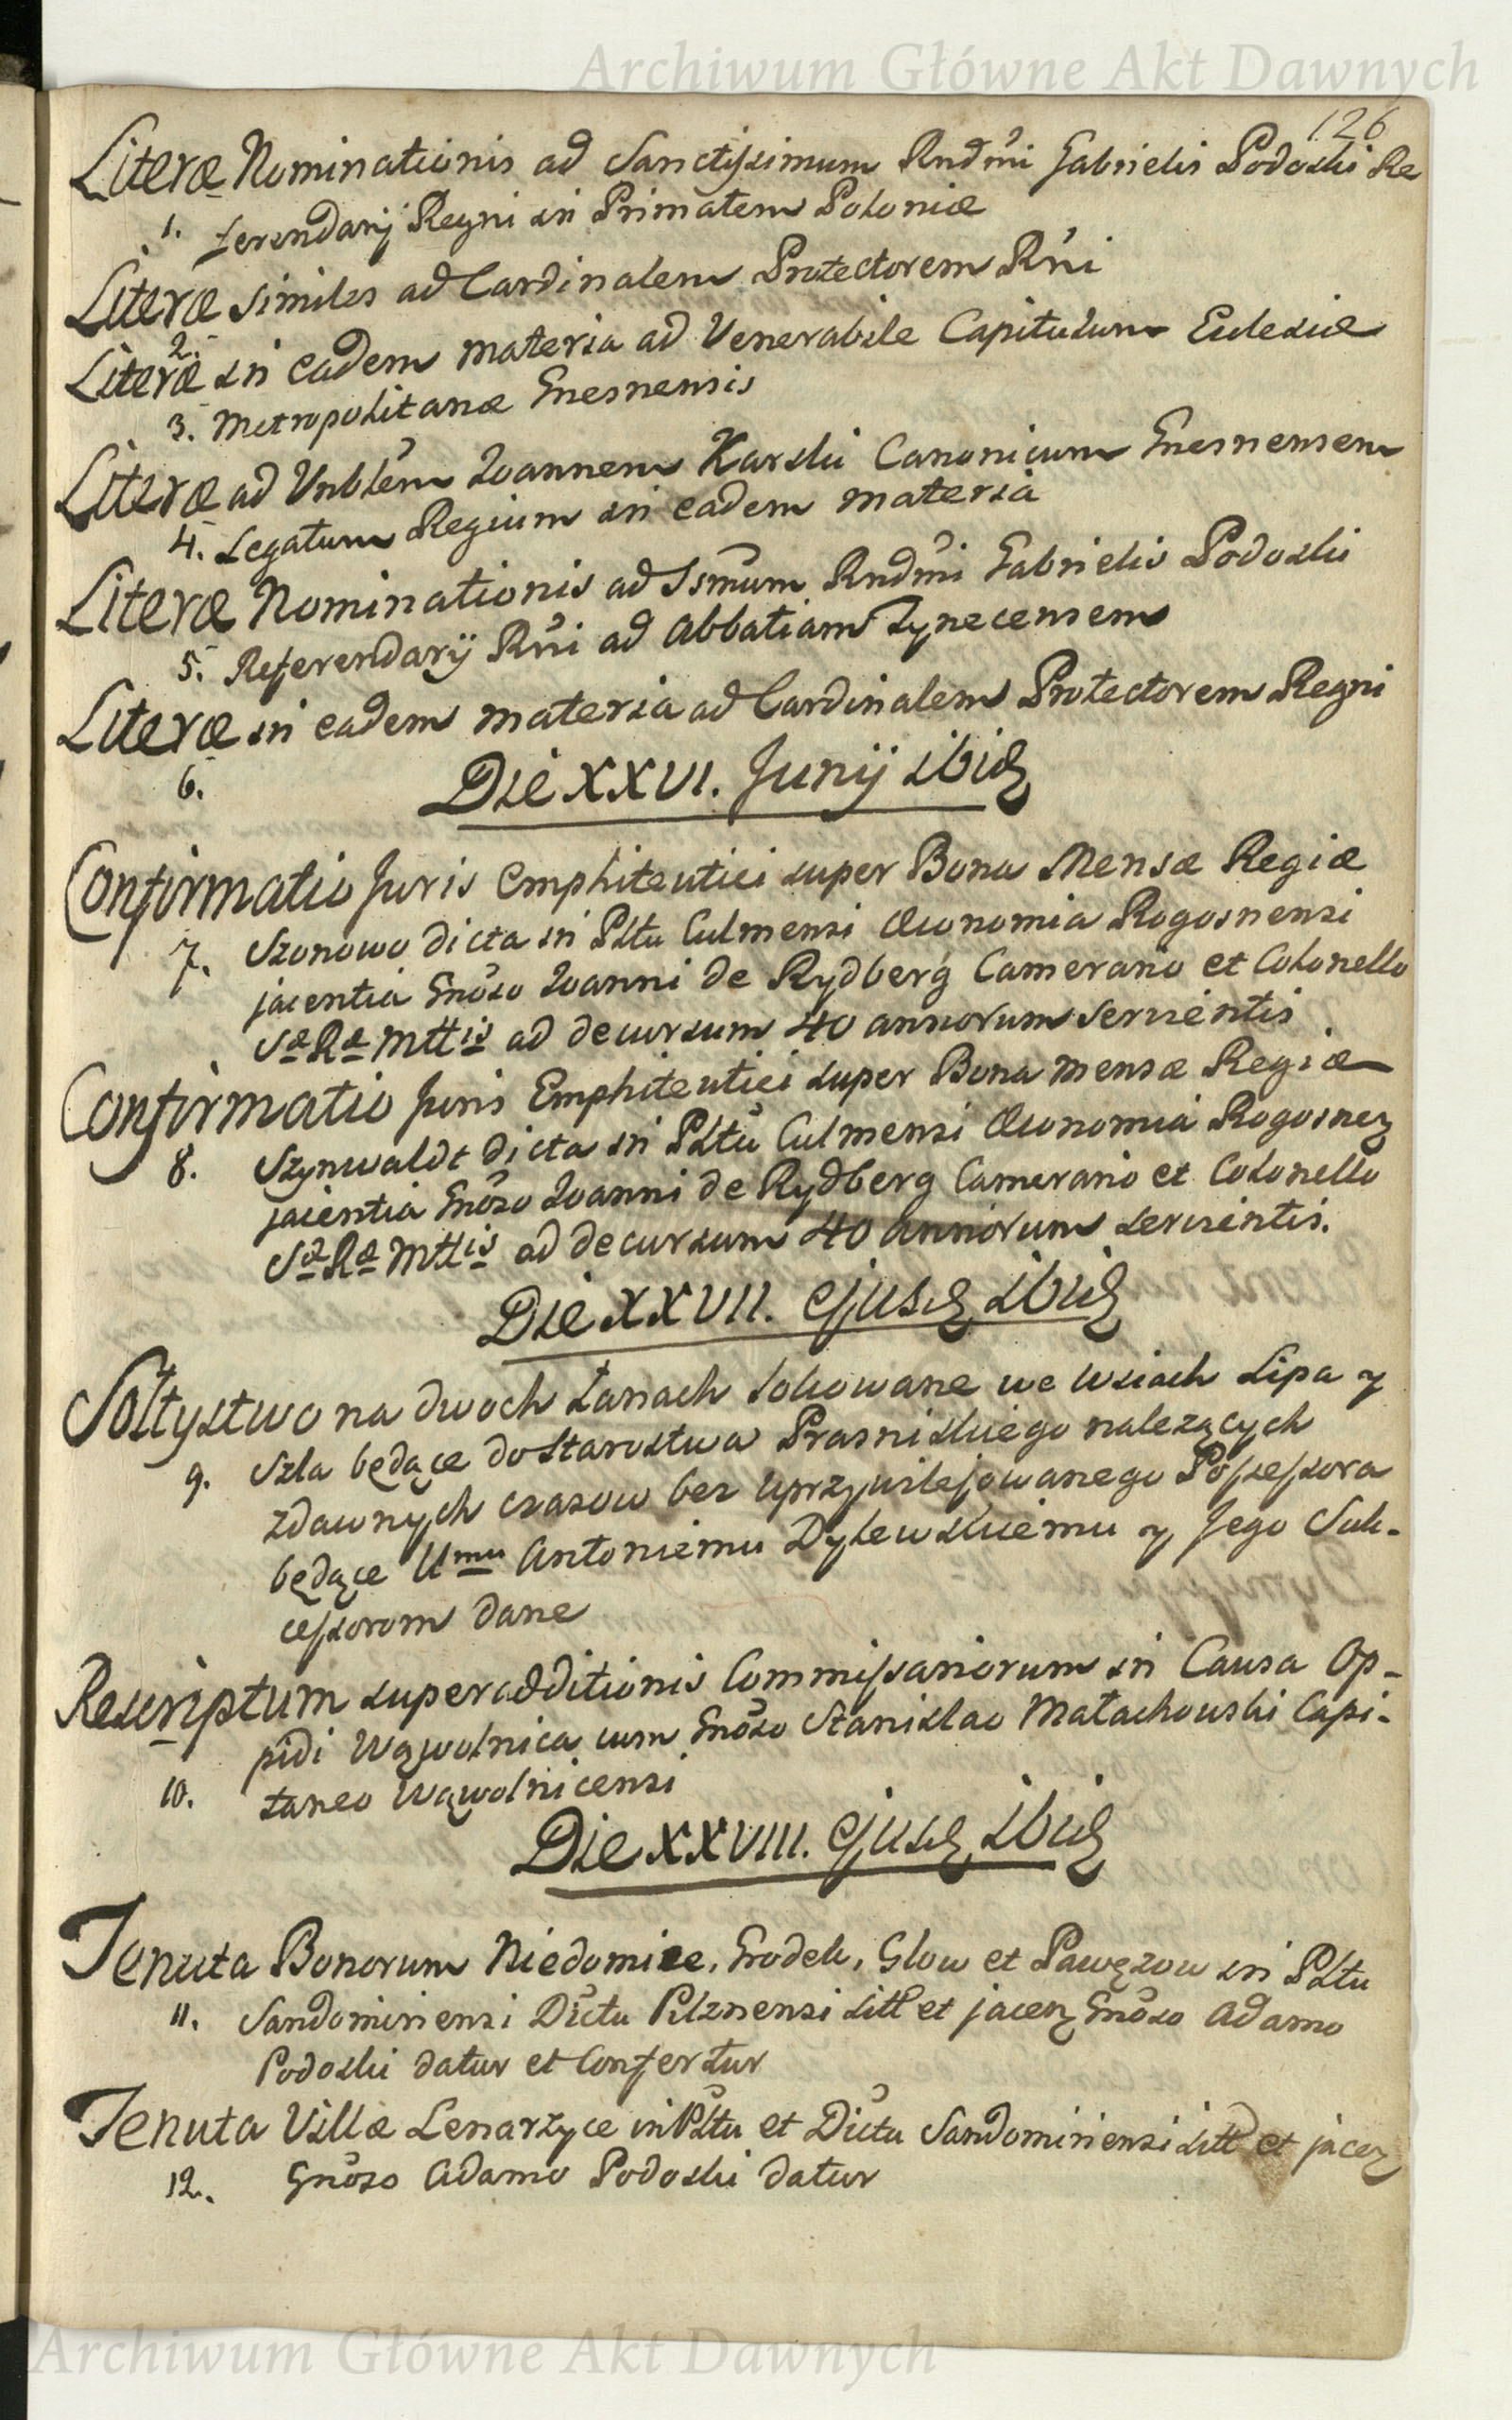 Archiwum Główne Akt Dawnych
126
Literæ Nominationis ad Sanctissimum Rndmi Gabrielis Podoski Re
1. ferendarij Regni in Primatem Poloniæ
Literæ similes ad Cardinalem Protectorem Rni
2.
Literæ in eadem materia ad Venerabile Capitulum Eclesiæ
3. Metropolitanæ Gnesnensis
Literæ ad Vnblem Ioannem Karski Canonicum Gnesnensem
4. Legatum Regium in eadem materia
Literæ Nominationis ad Ssmum Rndmi Gabrielis Podoski
5. Referendarij Rni ad Abbatiam Tynecensem
Literæ in eadem materia ad Cardinalem Protectorem Regni
6.
Die XXVI. Junij ibid
Confirmatio Juris Emphiteutici super Bona Mensæ Regiæ
7. Szonowo dicta in Pltu Culmensi Œconomia Rogosnensi
jacentia Gnoso Ioanni de Rydberg Camerario et Colonello
Sæ Ræ Mttis ad decursum 40 annorum servientis
Confirmatio Juris Emphiteutici super Bona mensæ Regiæ
8. Szynwaldt dicta in Pltu Culmensi Œconomia Rogosnez
jacentia Gnoso Ioanni de Rydberg Camerario et Colonello
Sæ Ræ Mttis ad decursum 40 annorum servientis.
Die XXVII. ejusd ibid
Sołtystwo na dwoch Łanach lokowane we wsiach Lipa y
9. Szla będące do Starostwa Prasniskiego nalezących
zdawnych czasow bez uprzywilejowanego Possessora
będące Umu Antoniemu Dylewskiemu y Jego Suk-
cessorom dane
Rescriptum superadditionis Commissariorum in Causa Op-
pidi Wąwolnica cum Gnoso Stanislao Małachowski Capi-
10. taneo Wąwolnicensi
Die XXVIII. ejusd ibid
Tenuta Bonorum Niedomice, Grodek, Glow et Pawęzow in Pltu
11. Sandomiriensi Dictu Pilznensi sitt et jacen Gnoso Adamo
Podoski datur et Confertur
Tenuta Villæ Lenarzyce in Pltu et Dictu Sandomiriensi sitt et jacen
12. Gnoso Adamo Podoski datur
Archiwum Główne Akt Dawnych